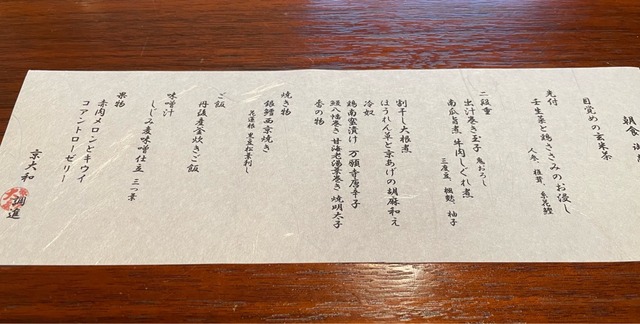 朝食
目覚めの玄米茶
先付
壬生菜と鶏ささみのお浸し
人参、椎茸、糸花鰹
二段重
出汁巻き玉子 鬼おろし
牛肉しぐれ煮
南瓜旨煮
三度豆、楓麩、柚子
割干し大根煮
ほうれん草と京あげの胡麻和え
冷奴
鶏南蛮漬け 万願寺唐辛子
鰻八幡巻き 甘海老湯葉巻き 焼明太子
香の物
焼き物
銀鱈西京焼き
花蓮根 黒豆松葉刺し
ご飯
丹後産釜炊きご飯
味噌汁
しじみ麦味噌仕立 三つ葉
果物
赤肉メロンとキウイ
コアントローゼリー
京大和
調進